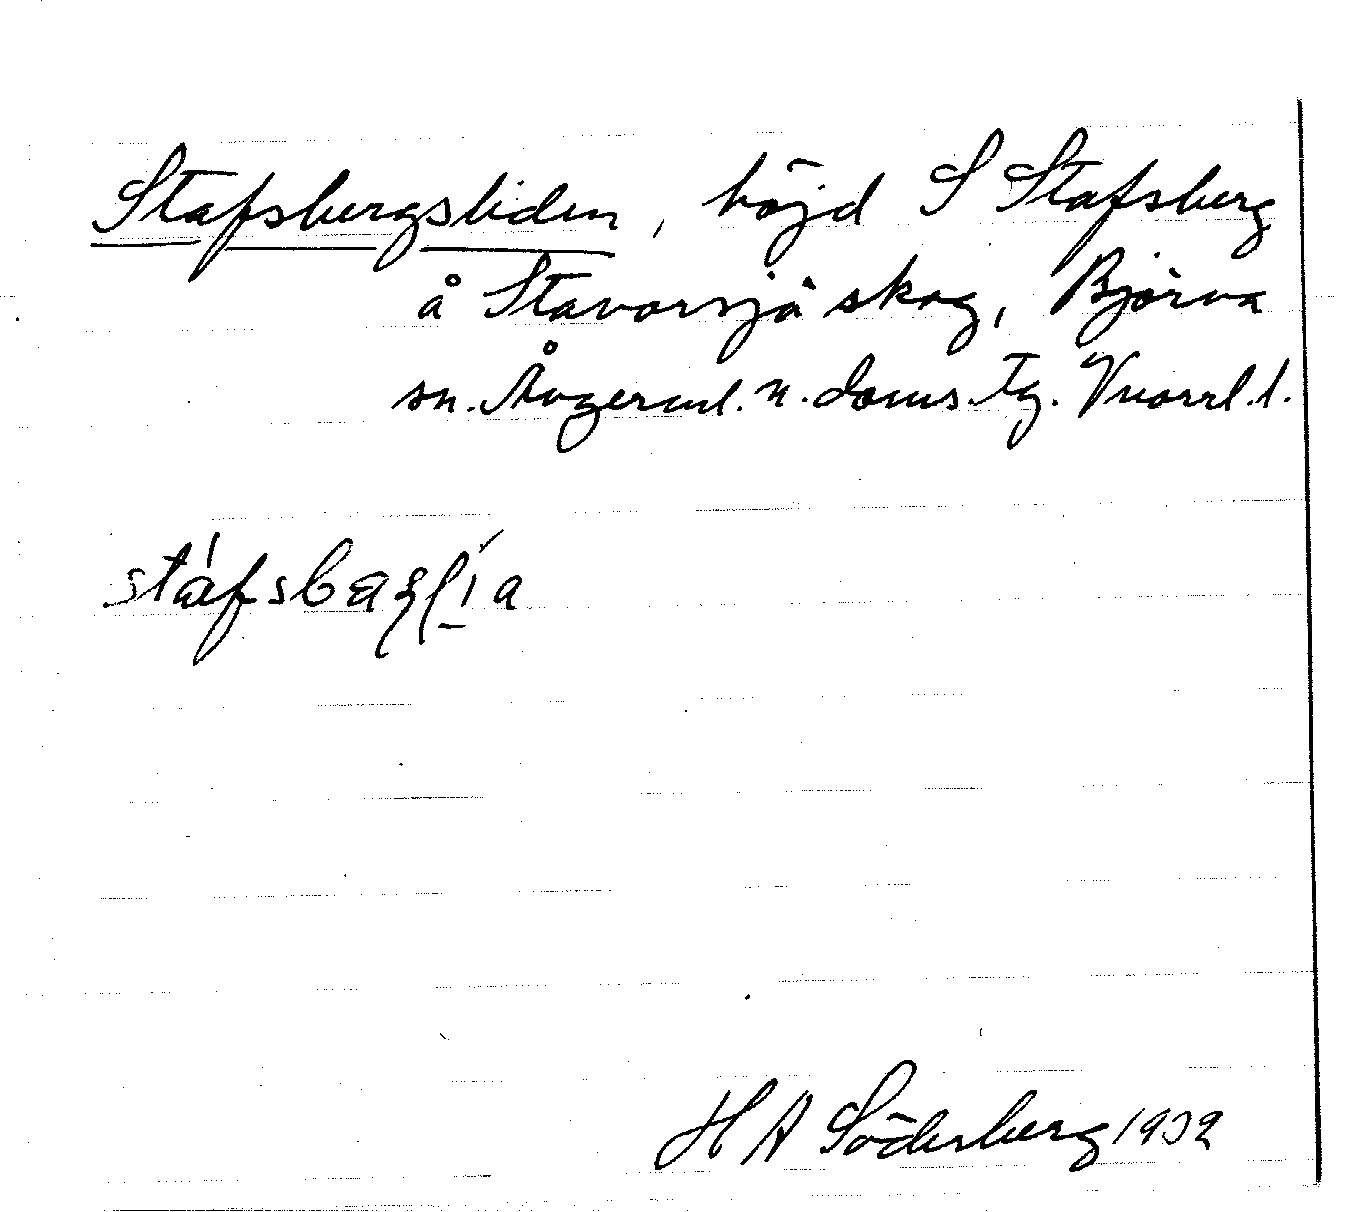 Stafsbergsliden, höjd S Stafsberg
å Stavarsjö skog, Björna
sn. Ångerml. n. doms. tg. Vnorrl. l.
stáfsbaɡlia
H A Söderberg 1932